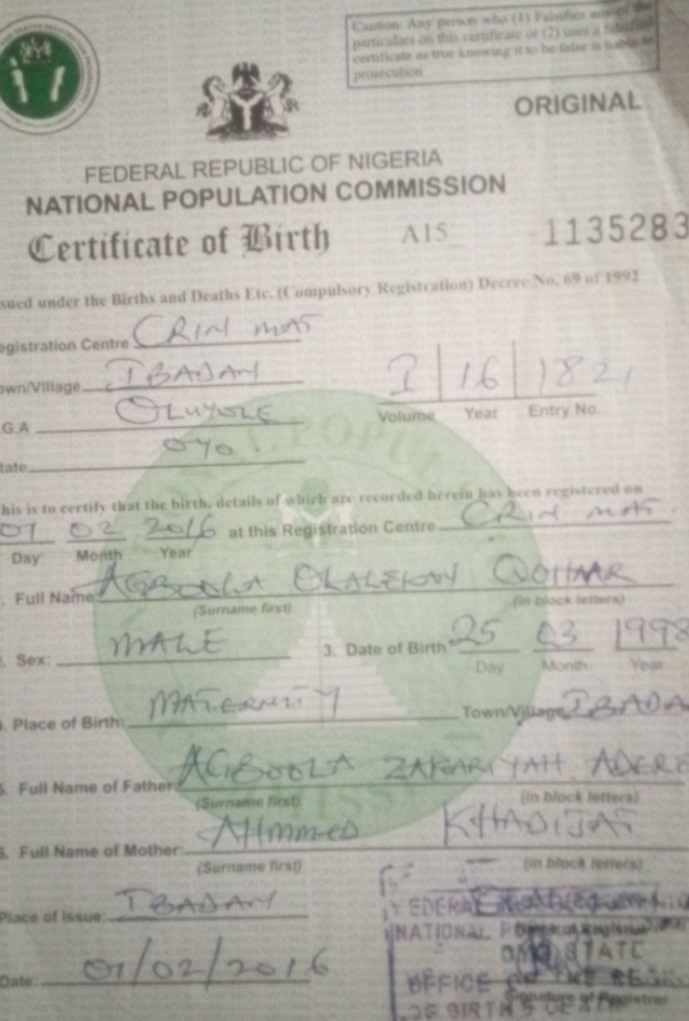 Caution: Any person who (1) Falsifies any of the
particulars on this certificate or (2) uses a falsified
certificate as true knowing it to be false is liable to
prosecution
ORIGINAL
FEDERAL REPUBLIC OF NIGERIA
NATIONAL POPULATION COMMISSION
Certificate of Birth A15 1135283
sued under the Births and Deaths Etc. (Compulsory Registration) Decree No. 69 of 1992
egistration Centre CRIN MAT
own/Village IBADAN
I 16 1821
Volume Year Entry No.
G.A OLUYOLE
tate OYO
his is to certify that the birth, details of which are recorded herein has been registered on
01 02 2016 at this Registration Centre CRIN MAT
Day Month Year
Full Name AGBOOLA OLALEKAN QOHAAR
(Surname first) (in block letters)
Sex: MALE 3. Date of Birth 25 03 1998
Day Month Year
Place of Birth: MATERNITY Town/Village IBADA
Full Name of Father AGBOOLA ZAKARIYAH ADERE
(Surname first) (in block letters)
Full Name of Mother: AHMMED KHADIJAT
(Surname first) (in block letters)
Place of Issue: IBADAN
Date: 01/02/2016
NATIONAL
STATE
OFFICE OF THE
OF BIRTH
Signature of Registrar